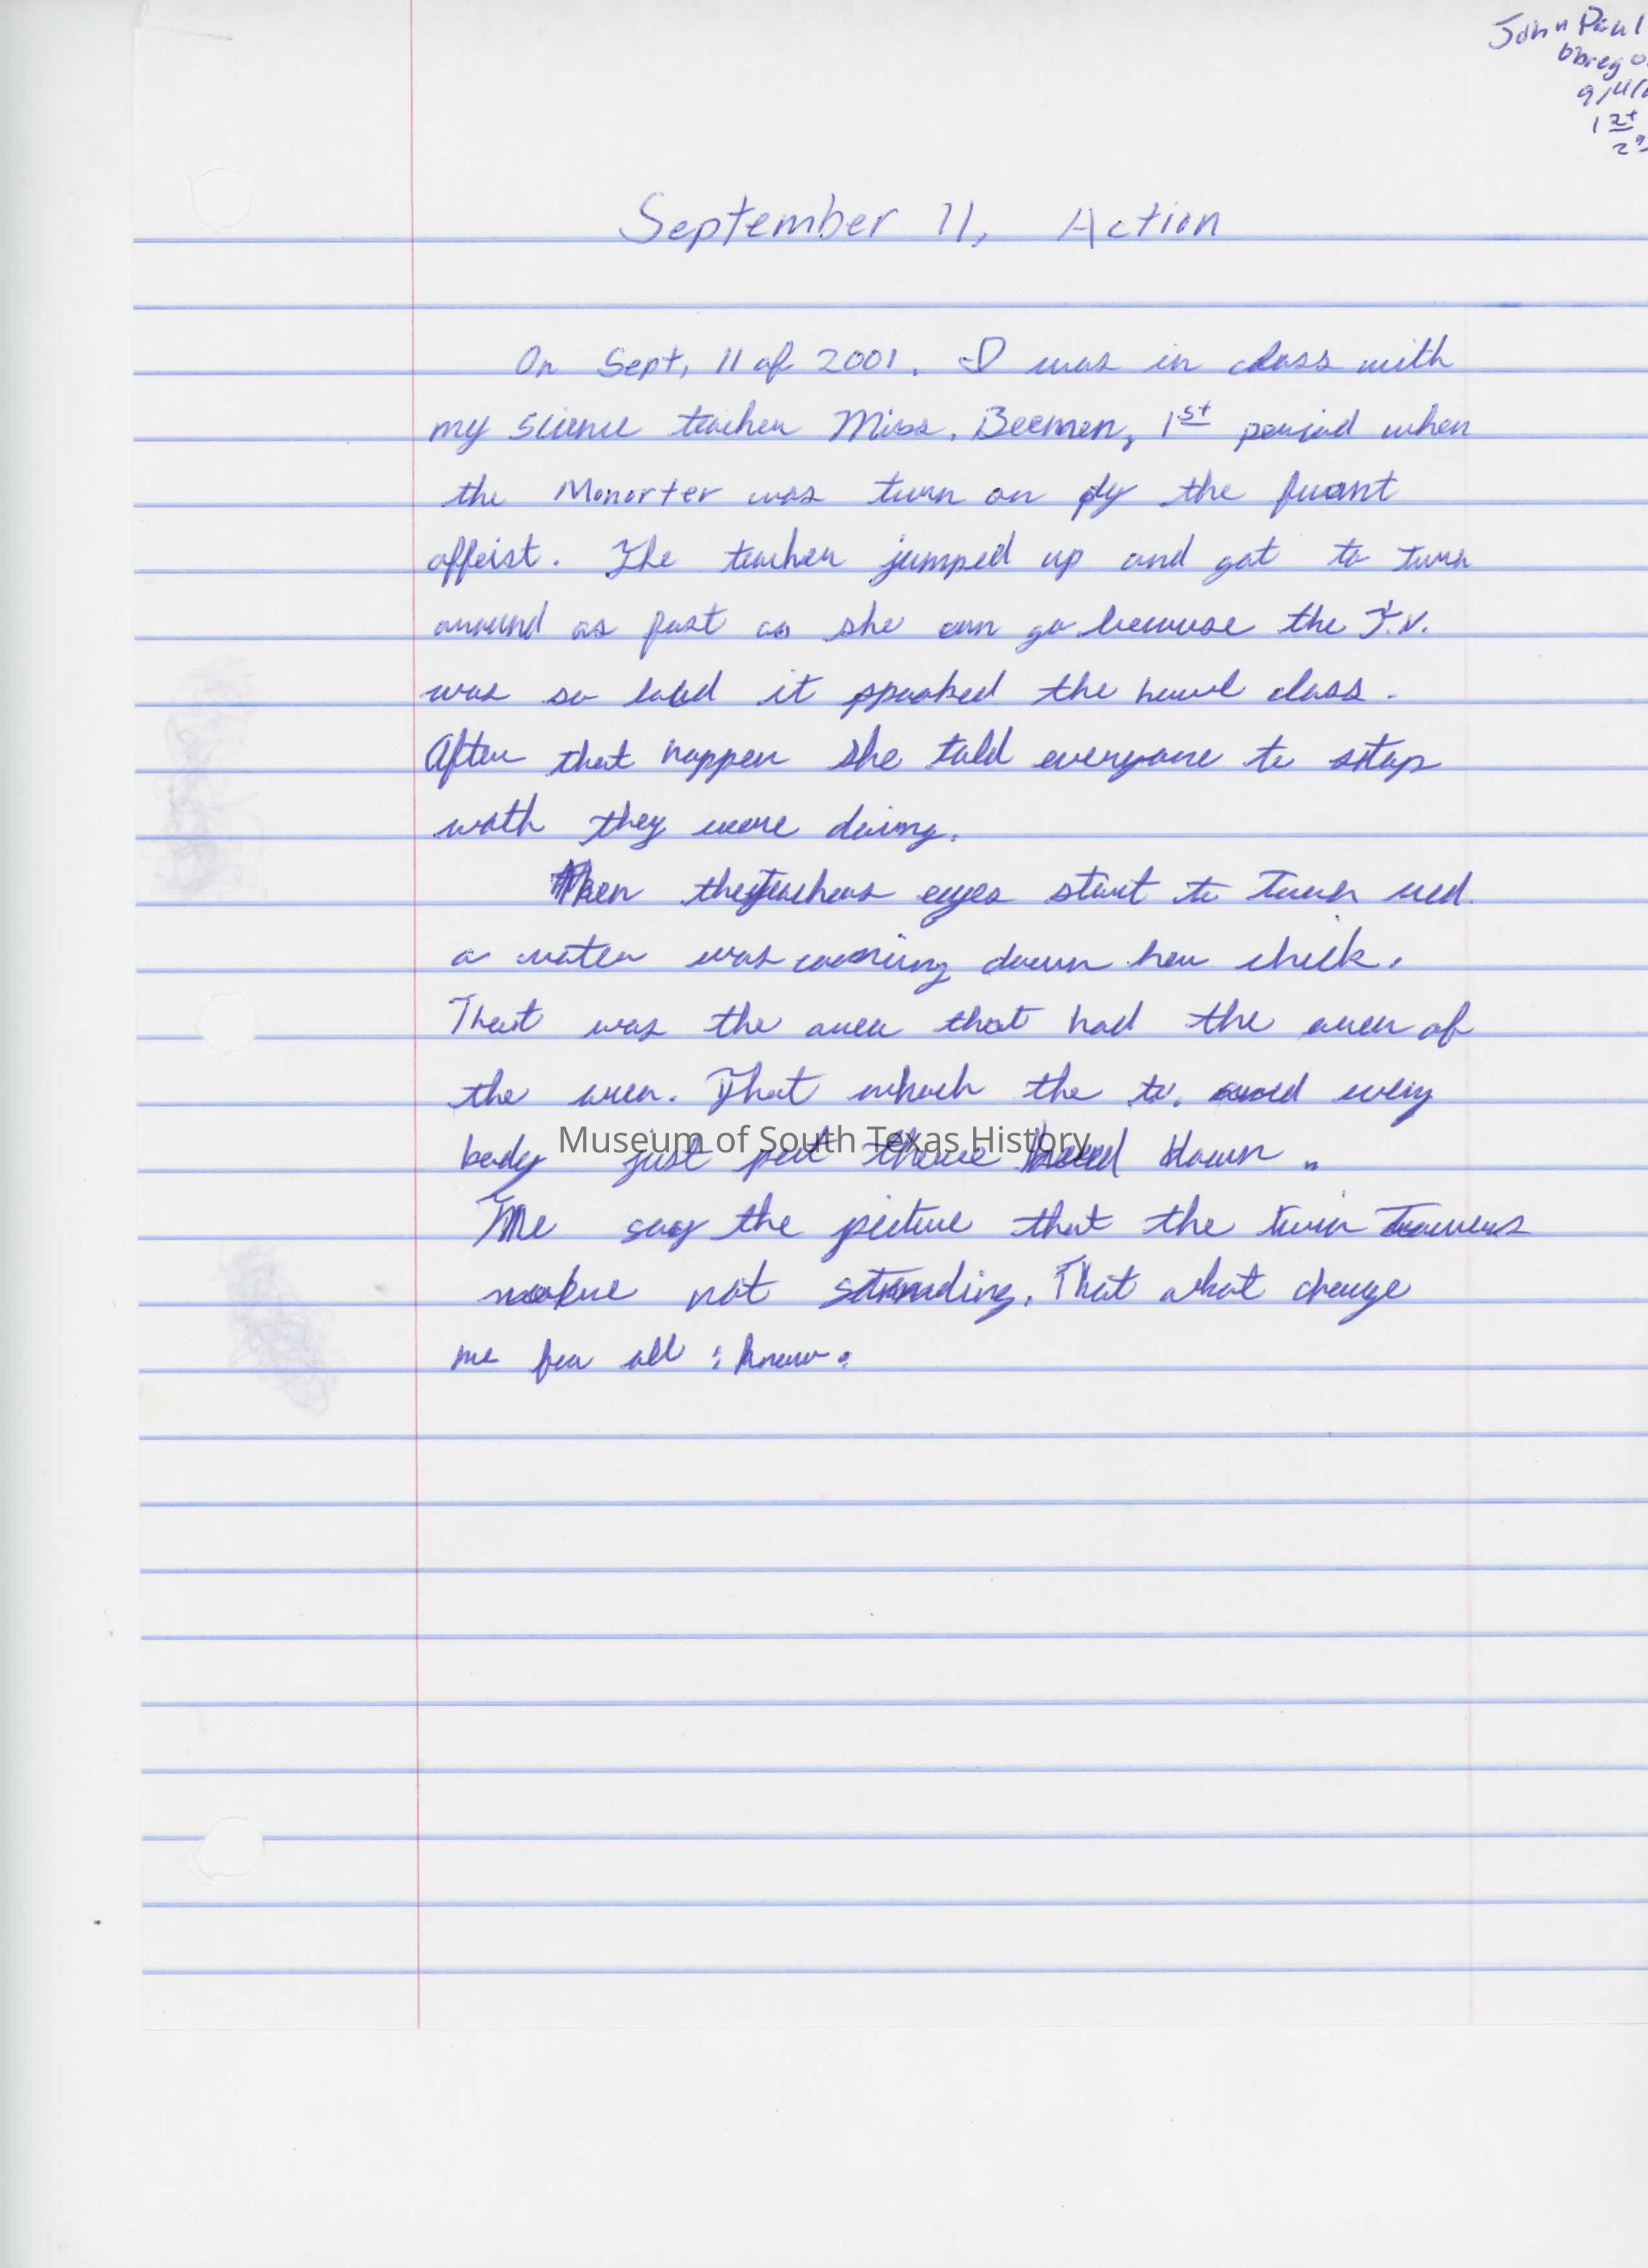 John Paul
Obrego
9/11/
1st
2n
September 11, Action
On Sept, 11 of 2001. I was in class with
my science teacher Miss. Beemen, 1st period when
the Monorter was turn on by the fruant
offeist. The teacher jumped up and got to turn
around as fast as she can go because the T.V.
was so loud it spooked the howl class.
After that happen she told everyone to stop
wath they were doing.
Then the teachers eyes start to turn red
a water was coming down her chick.
That was the area that had the area of
the area. That whach the tv. and every
body just put there head down.
Museum of South Texas History
We say the picture that the twin Towers
not standing. That what change
me for all i know.